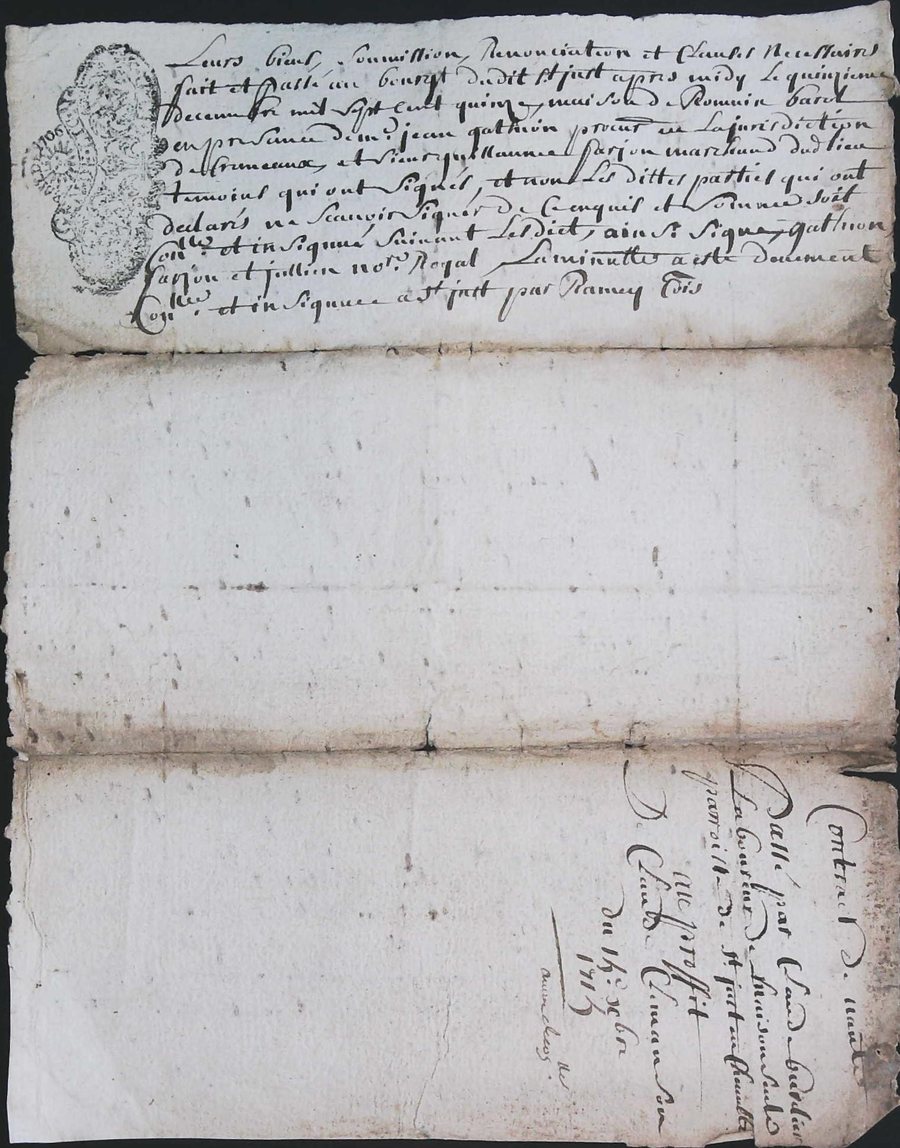 Leurs biens, soumission, Renonciation et Clauses Necessaires
fait et Passé au bourg dudit st just apres midy Le quinzieme
decembre mil sept cent quinze, maison de Romain barel
en presance de mr jean gathion procur en La jurisdiction
de Cremeaux, et sieur guillaume farjon marchand dud lieu
temoins qui ont signés, et non Les dittes parties qui ont
declarés ne scavoir signer de ce enquis et soit
Conlle et insignué suivant Les dict, ainsi signé, gathion
farjon et jullien nore Royal, La minutte a esté douement
Conllee et insignuee a st just par Ramey Cois
1706
Contract de
Passé par Claude
Laboureur de
parroisse de st just en Chevallet
au proffit
De Claude
du 15e xbre
1715